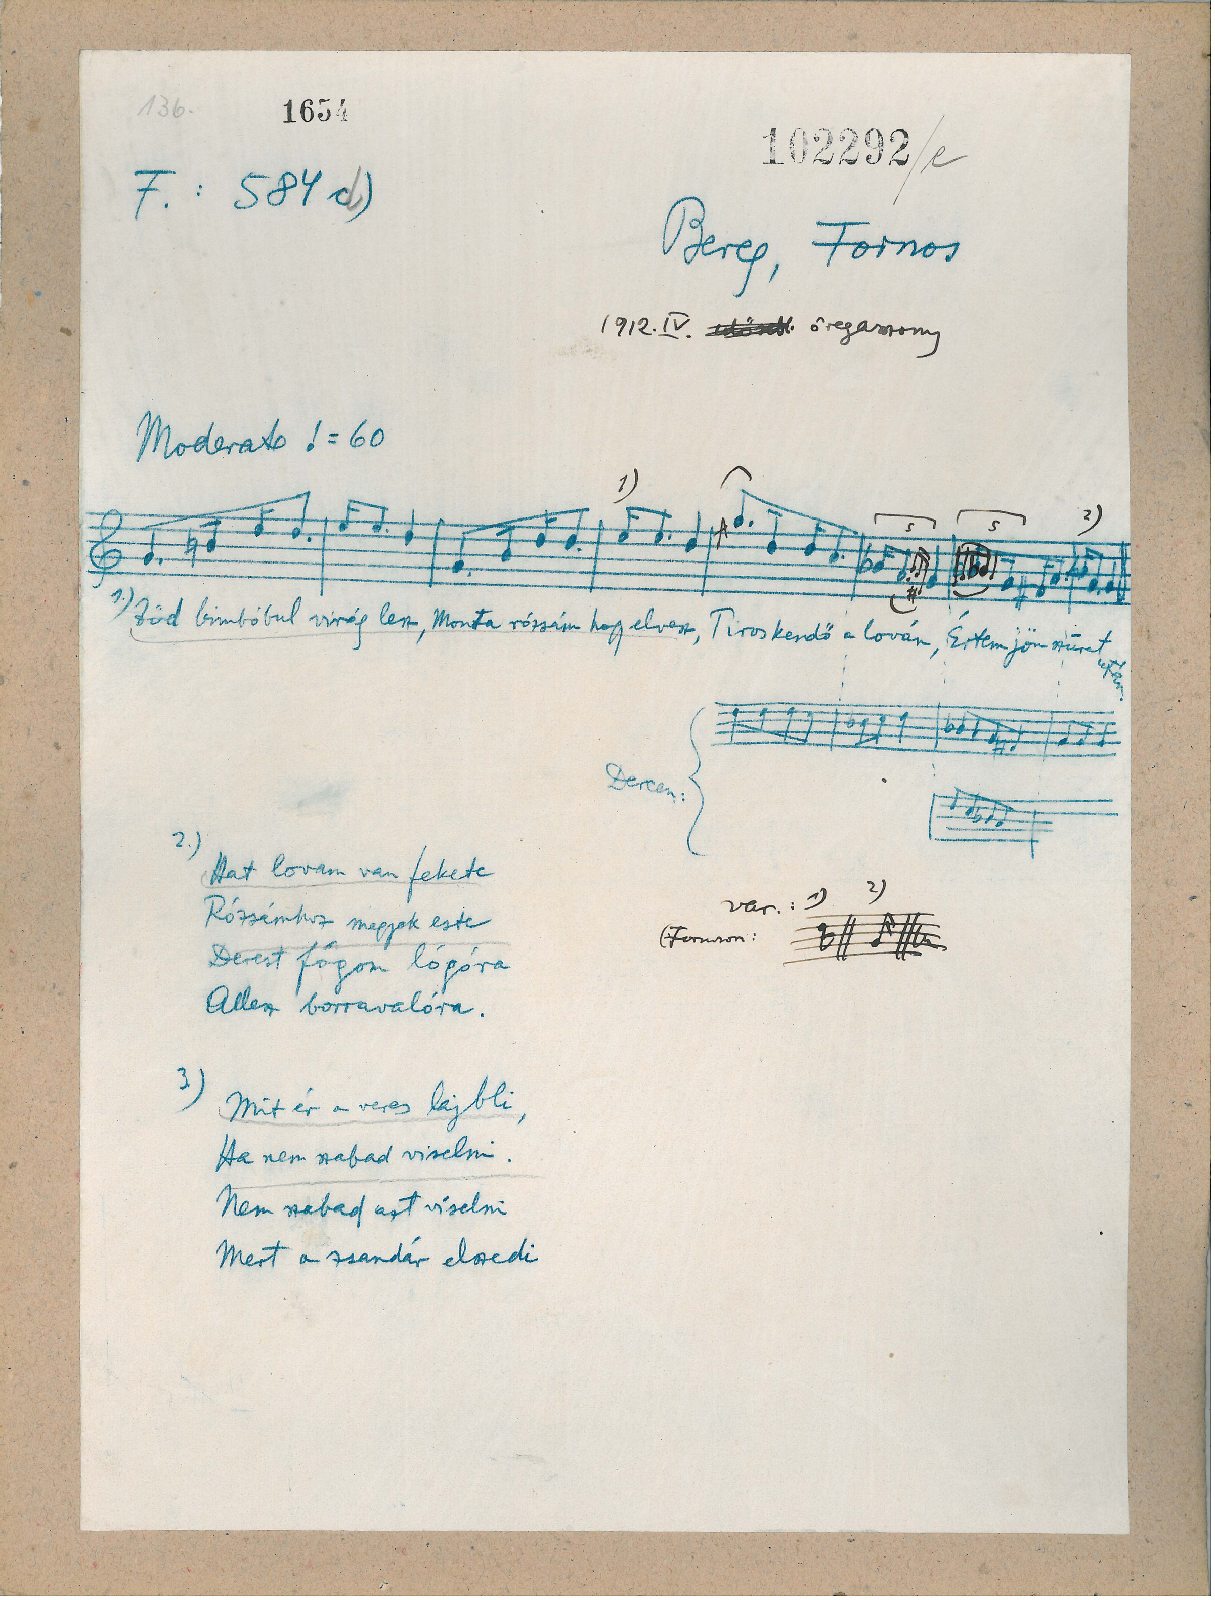 136.
1654
102292/e
F.: 584 d)
Bereg, Fornos
1912. IV. öregasszony
Moderato ♩= 60
1)
5
5
2)
1) Zöd bimbóbul virág lesz, Monta rózsám hogy elvesz, Piroskendő a lován, Értem jön szüret után.
Dercen:
2.)
Hat lovam van fekete
Rózsámhoz megyek este
Derest fógom lógóra
A lesz borravalóra.
var.: 1) 2)
(Fornoson:
3.)
Mit ér a veres lajbli,
Ha nem szabad viselni.
Nem szabad azt viselni
Mert a zsandár elszedi